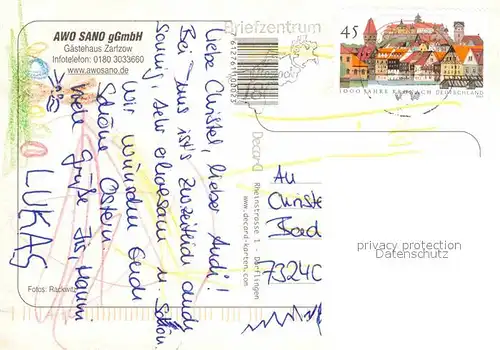 AWO SANO gGmbH
Gästehaus Zarfzow
Infotelefon: 0180 3033660
www.awosano.de
Briefzentrum
45
1000 JAHRE KRONACH DEUTSCHLAND
Liebe Christel, lieber Audi!
Bei uns ist's zurzeit auch
sonnig, sehr erholsam u. schön.
Wir wünschen Euch
Schöne Ostern.
Viele Grüße Iris, Mann
LUKAS
An
Christe
Bad
7324
Decard
Rheinstrasse 1 - Dorflingen
www.decard-karten.com
Fotos: Rackwitz
privacy protection
Datenschutz